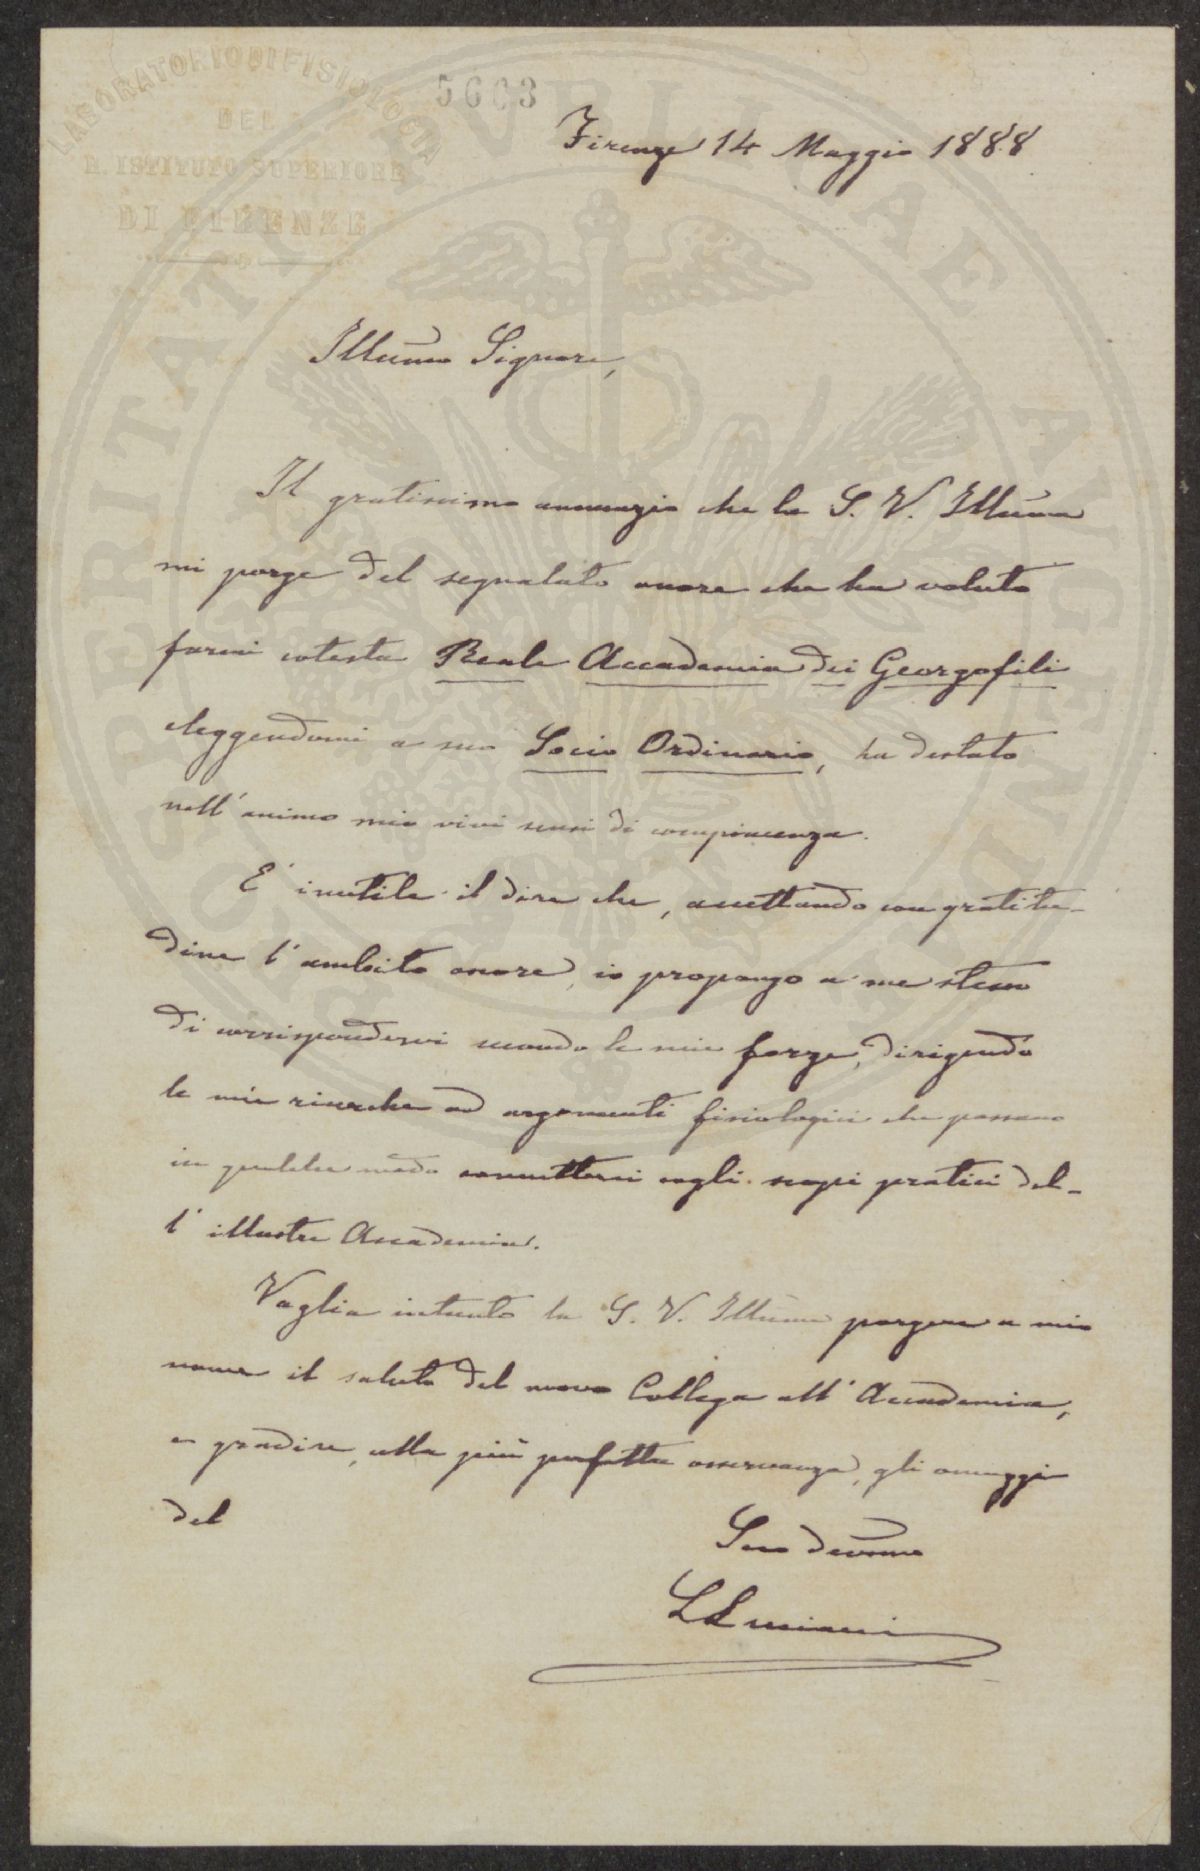 LABORATORIO DI FISIOLOGIA
DEL
R. ISTITUTO SUPERIORE
DI FIRENZE
5603
Firenze 14 Maggio 1888
Illumo Signore,
Il gratissimo annunzio che la S. V. Illuma
mi porge del segnalato onore che ha voluto
farmi cotesta Reale Accademia dei Georgofili
eleggendomi a suo Socio Ordinario, ha destato
nell'animo mio vivi sensi di compiacenza.
E' inutile il dire che, accettando con gratitu-
dine l'ambito onore, io propongo a me stesso
di corrispondervi secondo le mie forze, dirigendo
le mie ricerche ad argomenti fisiologici che possano
in qualche modo connettersi cogli scopi pratici del-
l'illustre Accademia.
Voglia intanto la S. V. Illuma porgere a mio
nome il saluto del nuovo Collega all'Accademia,
e gradire, colla più perfetta osservanza, gli omaggi
del
Suo devomo
L Luciani
PROSPERITATI PVBLICAE AVGENDAE